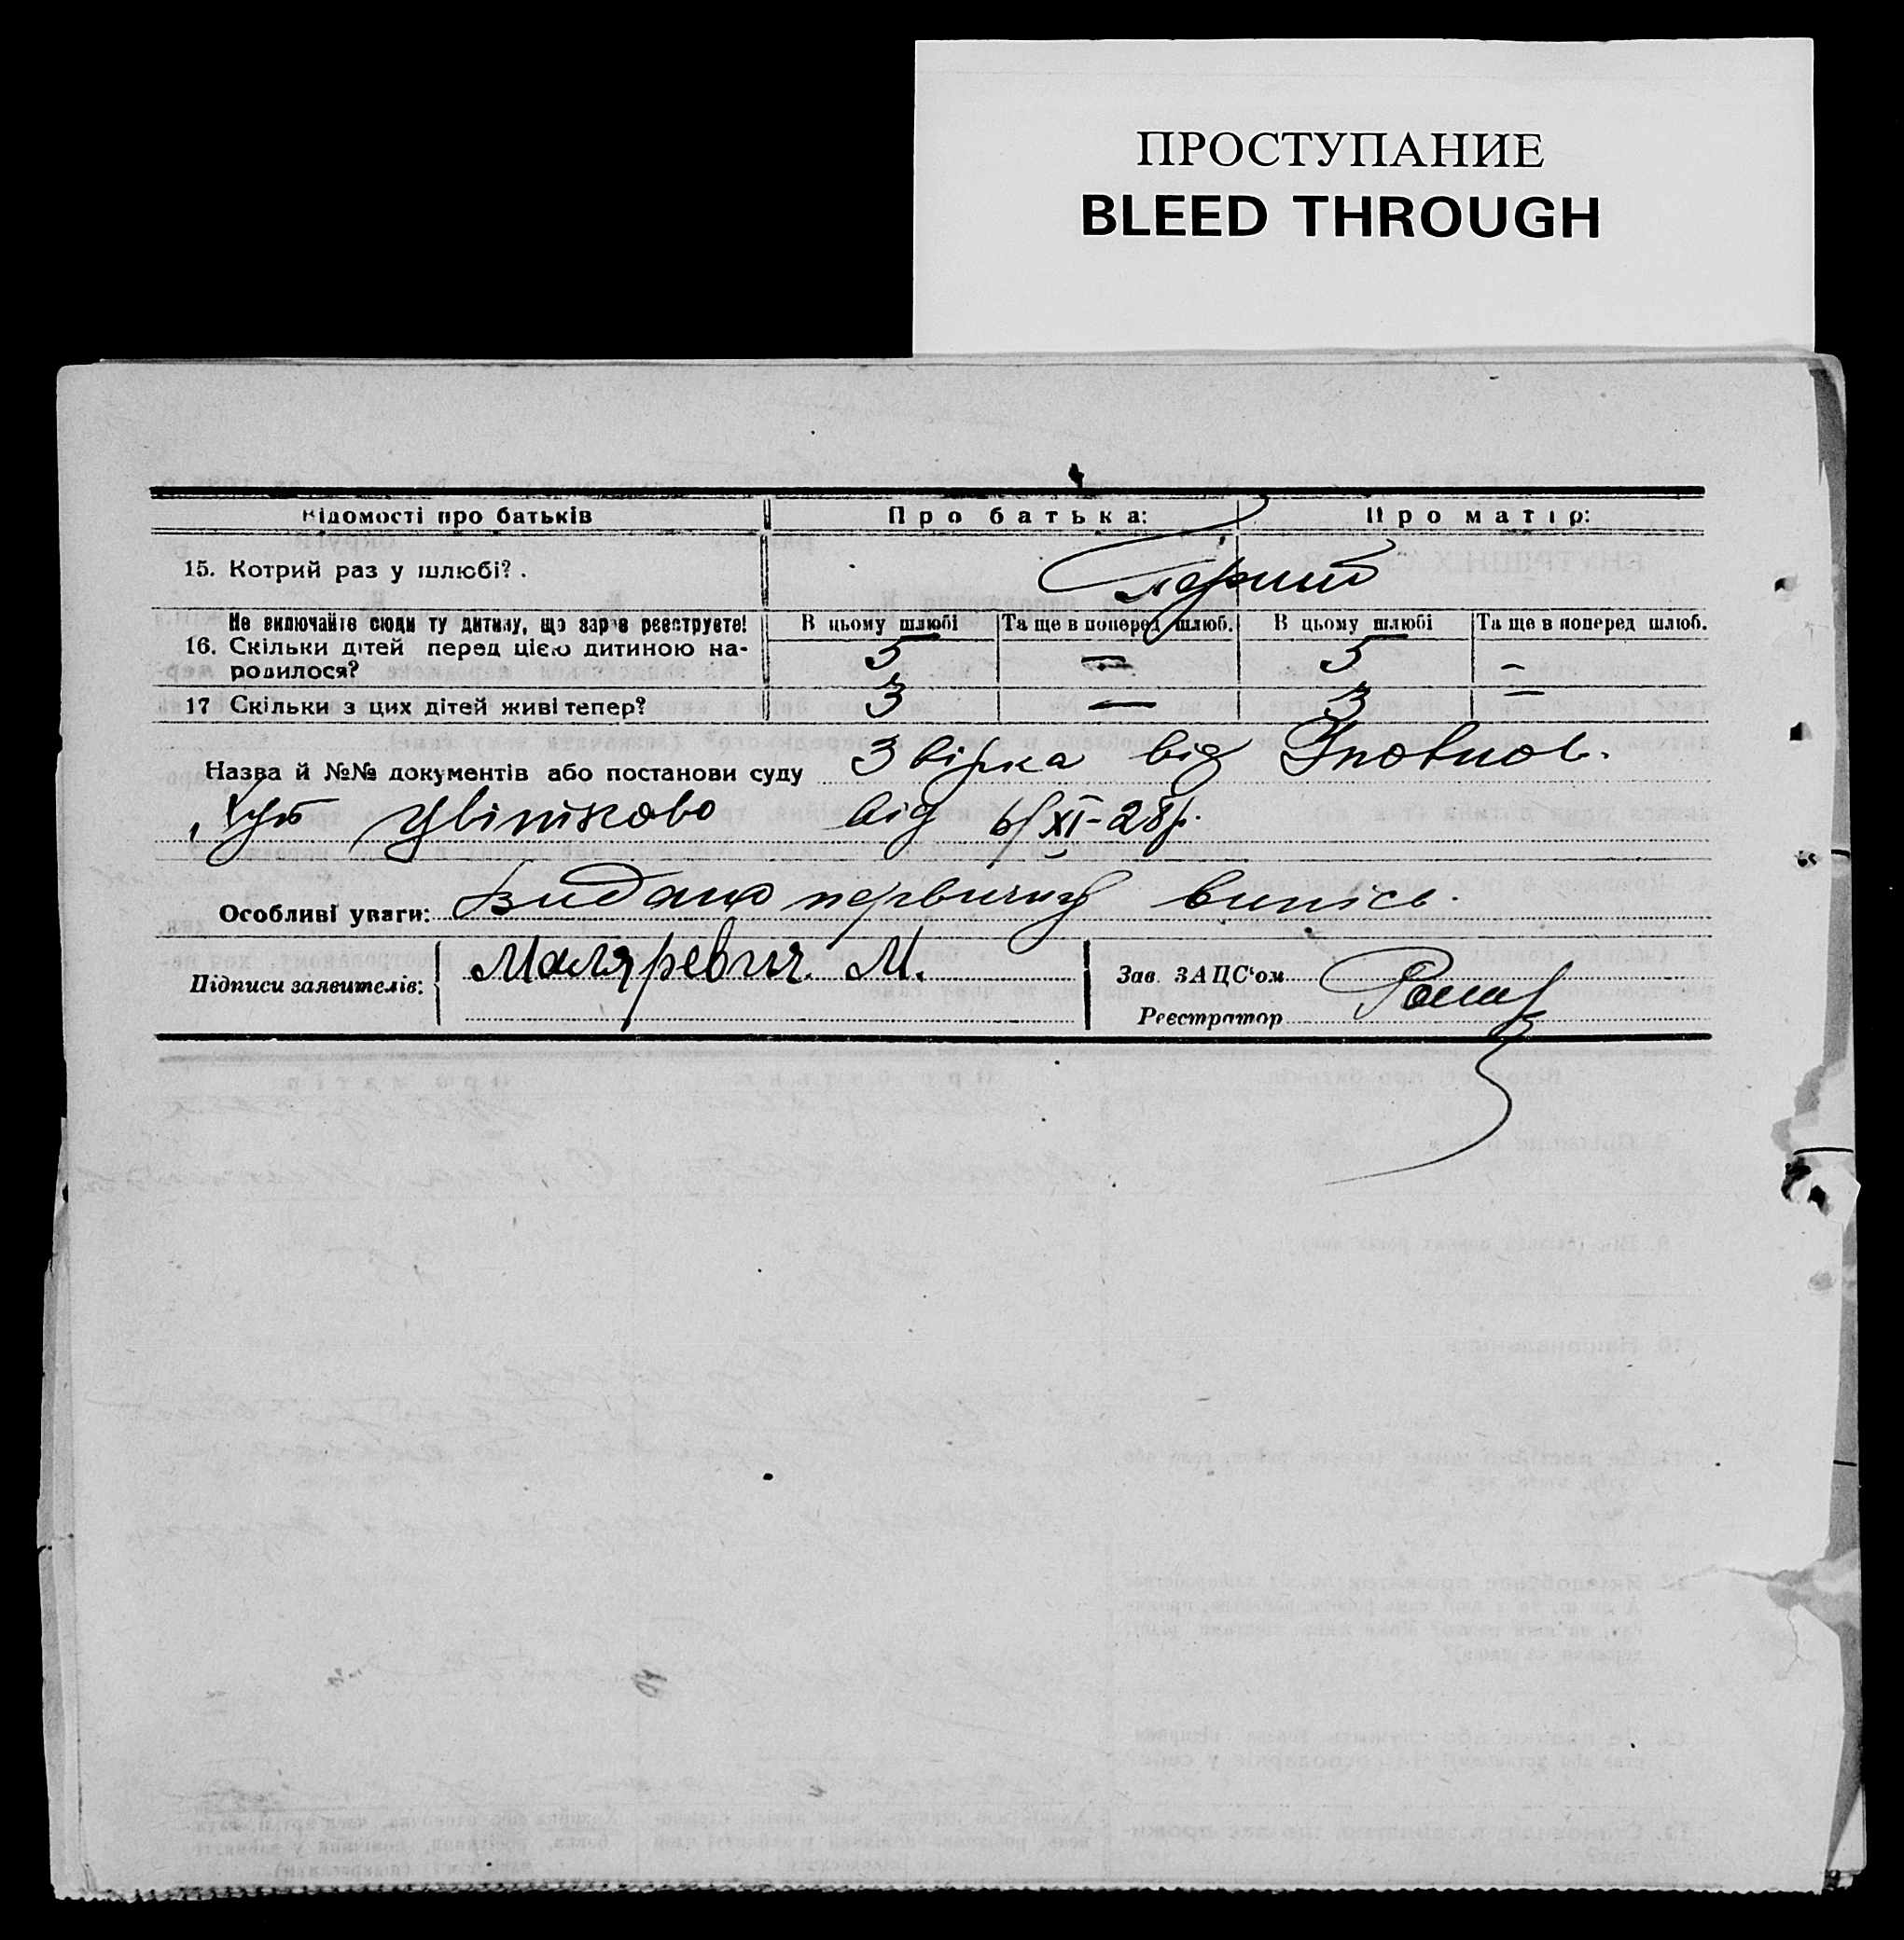 ПРОСТУПАНИЕ
BLEED THROUGH
Відомості про батьків Про батька: Про матір:
15. Котрий раз у шлюбі? . Перший
Не включайте сюди ту дитину, що зараз реєструєте! В цьому шлюбі Та ще в поперед шлюб. В цьому шлюбі Та ще в поперед шлюб.
16. Скільки дітей перед цією дитиною на-
родилося? 5 — 5 —
17 Скільки з цих дітей живі тепер? 3 — 3 —
Назва й №№ документів або постанови суду від Уповнов.
Хут від 6/XI-28р.
Особливі уваги: Видано первичну випісь.
Підписи заявителів: Маляревич М. Зав. ЗАЦС'ом
Реєстратор